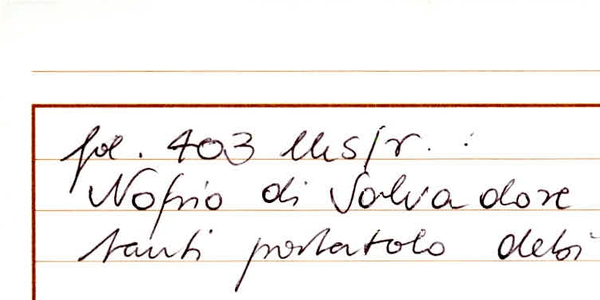 fol. 403 MS/r. :
Nofrio di Salvadore
tanti portatolo debi